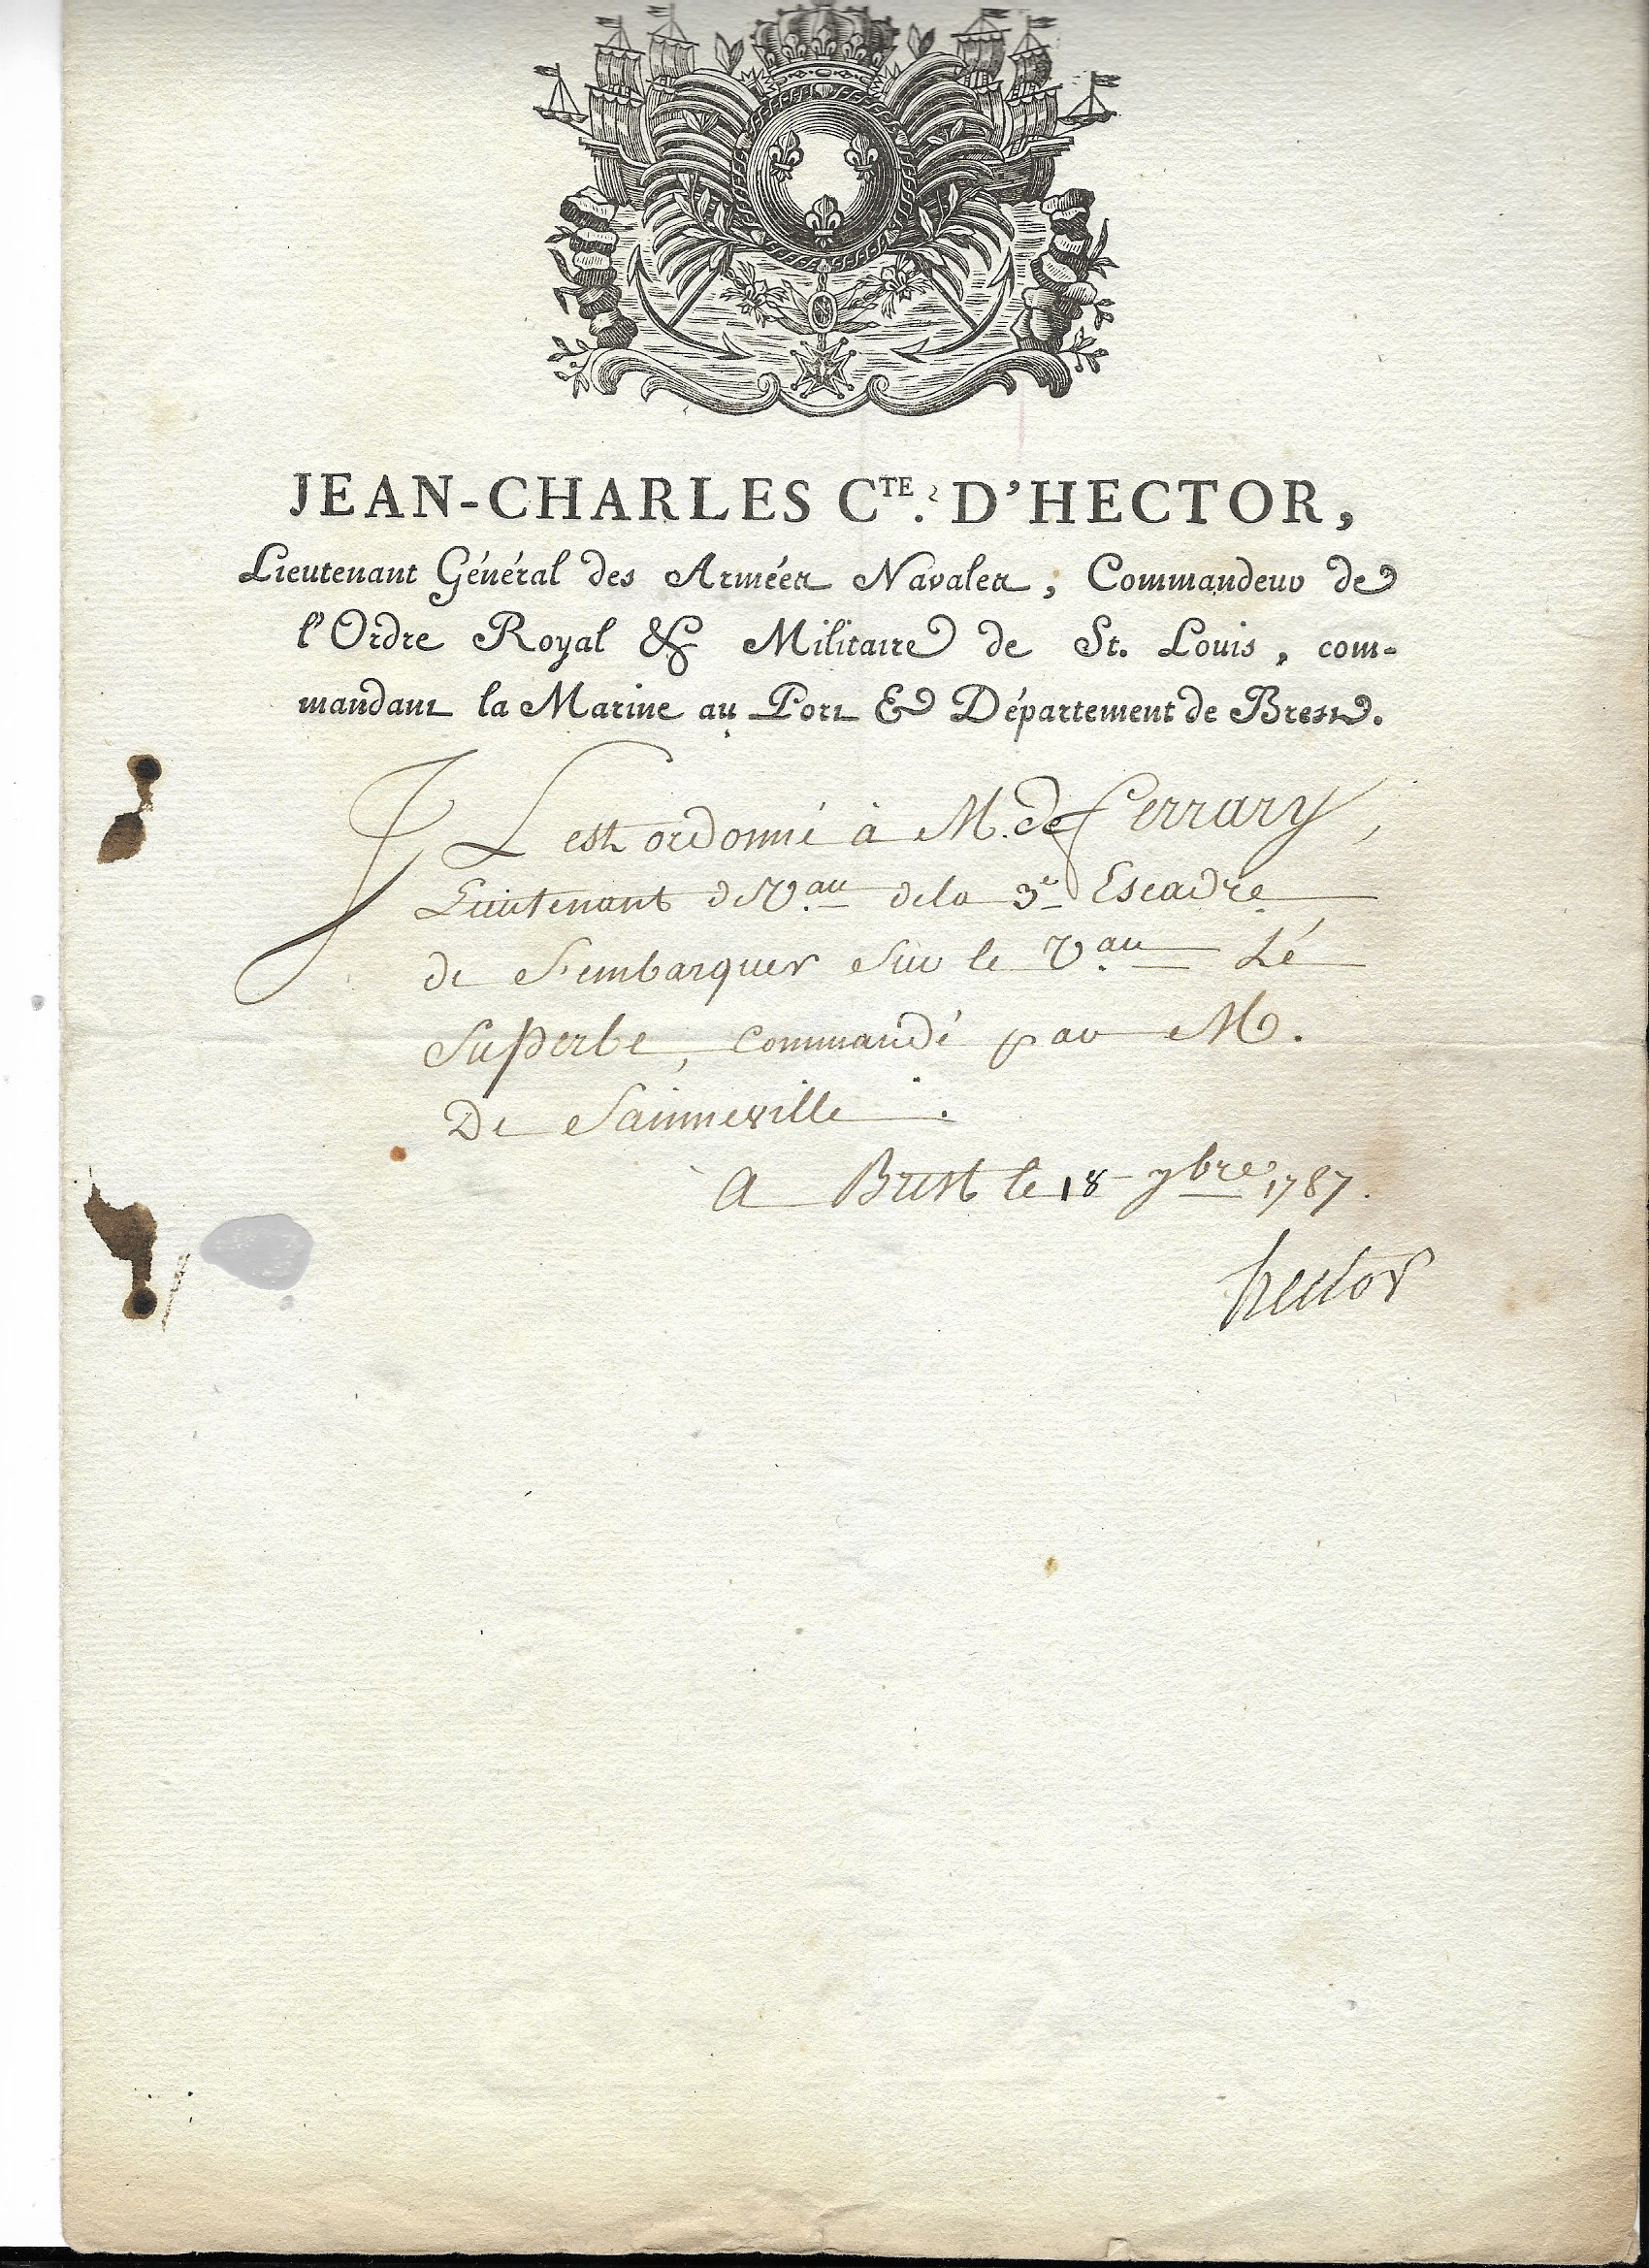 JEAN-CHARLES CTE. D'HECTOR,
Lieutenant Général des Armées Navales, Commandeur de
l'Ordre Royal & Militaire de St. Louis, com-
mandant la Marine au Port & Département de Brest.
IL est ordonné à M. de Ferrary,
Lieutenant de V.au de la 3e Escadre
de S'embarquer Sur le V.au Lé
Superbe, commandé par M.
De Sainneville.
A Brest le 18 9bre 1787.
hector